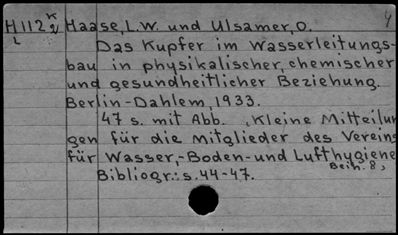 H 112 K 2 Haase, L.W. und Ulsamer, O. 4
L
Das Kupfer im Wasserleitungs-
bau in physikalischer, chemischer
und gesundheitlicher Beziehung.
Berlin-Dahlem, 1933.
47 s. mit Abb. Kleine Mitteilun
gen für die Mitglieder des Vereins
für Wasser,-Boden-und Lufthygiene
Beih. 8,
Bibliogr.: s. 44-47.